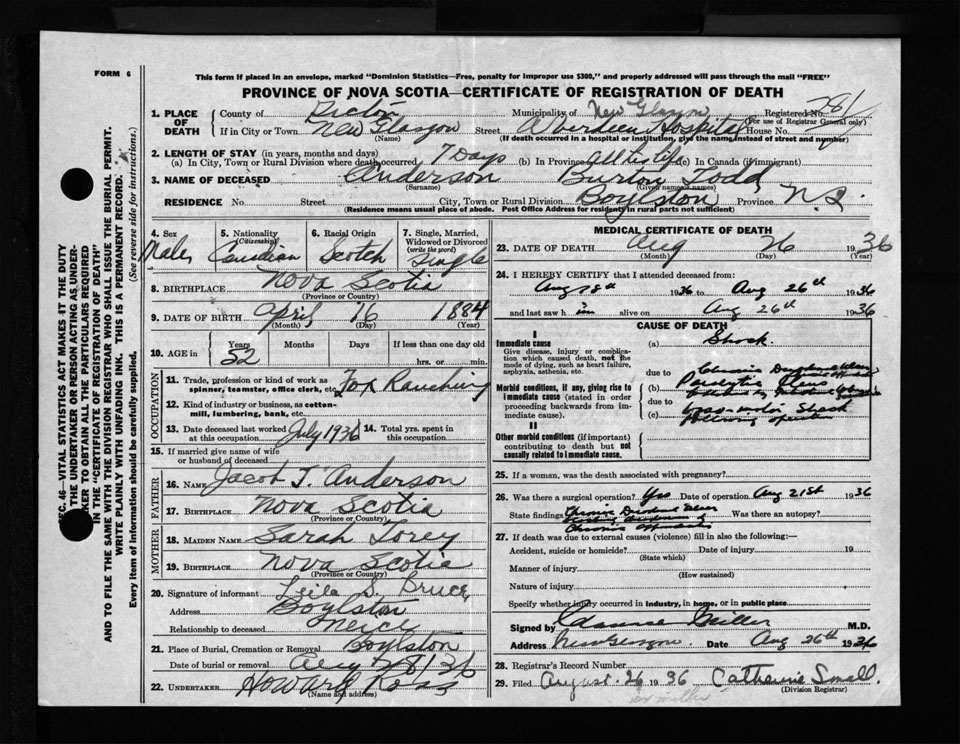 FORM 6
This form if placed in an envelope, marked "Dominion Statistics—Free, penalty for improper use $300," and properly addressed will pass through the mail "FREE"
PROVINCE OF NOVA SCOTIA—CERTIFICATE OF REGISTRATION OF DEATH
1. PLACE OF DEATH
County of Pictou Municipality of New Glasgow Registered No. 781
(For use of Registrar General only)
If in City or Town New Glasgow Street Aberdeen Hospital House No.
(If death occurred in a hospital or institution, give the name instead of street and number)
2. LENGTH OF STAY (in years, months and days)
(a) In City, Town or Rural Division where death occurred 7 Days (b) In Province all his life (c) In Canada (if immigrant)
3. NAME OF DECEASED Anderson Burton Todd
(Surname) (Given name or names)
RESIDENCE No. Street City, Town or Rural Division Boylston Province N.S.
(Residence means usual place of abode. Post Office Address for residents in rural parts not sufficient)
4. Sex Male
5. Nationality (Citizenship) Canadian
6. Racial Origin Scotch
7. Single, Married, Widowed or Divorced (write the word) Single
8. BIRTHPLACE Nova Scotia
(Province or Country)
9. DATE OF BIRTH April 16 1884
(Month) (Day) (Year)
10. AGE in Years 52 Months Days If less than one day old
hrs. or min.
OCCUPATION
11. Trade, profession or kind of work as spinner, teamster, office clerk, etc. Fox Ranching
12. Kind of industry or business, as cotton-mill, lumbering, bank, etc.
13. Date deceased last worked at this occupation July 1936
14. Total yrs. spent in this occupation
15. If married give name of wife or husband of deceased
FATHER
16. NAME Jacob T. Anderson
17. BIRTHPLACE Nova Scotia
(Province or Country)
MOTHER
18. MAIDEN NAME Sarah Torey
19. BIRTHPLACE Nova Scotia
(Province or Country)
20. Signature of informant Leila S. Bruce
Address Boylston
Relationship to deceased Neice
21. Place of Burial, Cremation or Removal Boylston
Date of burial or removal Aug 28/36
22. UNDERTAKER Howard Ross
(Name and address)
MEDICAL CERTIFICATE OF DEATH
23. DATE OF DEATH Aug 26 1936
(Month) (Day) (Year)
24. I HEREBY CERTIFY that I attended deceased from:
Aug 1936 to Aug 26th 1936
and last saw him alive on Aug 26th 1936
CAUSE OF DEATH
I
Immediate cause
Give disease, injury or complication which caused death, not the mode of dying, such as heart failure, asphyxia, asthenia, etc.
(a) Shock
due to Chronic
Morbid conditions, if any, giving rise to immediate cause (stated in order proceeding backwards from immediate cause).
(b) Paralytic Ileus
due to
(c) Shock
following operation
II
Other morbid conditions (if important) contributing to death but not causally related to immediate cause.
25. If a woman, was the death associated with pregnancy?
26. Was there a surgical operation? Yes Date of operation Aug 21st 1936
State findings Chronic Duodenal Ulcer
Chronic
Was there an autopsy?
27. If death was due to external causes (violence) fill in also the following:—
Accident, suicide or homicide? Date of injury 19
(State which)
Manner of injury
(How sustained)
Nature of injury
Specify whether injury occurred in industry, in home, or in public place
Signed by Miller M.D.
Address New Glasgow Date Aug 26th 1936
28. Registrar's Record Number
29. Filed August 26 1936 Catherine Small.
(Division Registrar)
SEC. 46—VITAL STATISTICS ACT MAKES IT THE DUTY
OF THE UNDERTAKER OR PERSON ACTING AS UNDER-
TAKER TO OBTAIN ALL THE PARTICULARS REQUIRED
IN THE "CERTIFICATE OF REGISTRATION OF DEATH"
AND TO FILE THE SAME WITH THE DIVISION REGISTRAR WHO SHALL ISSUE THE BURIAL PERMIT.
WRITE PLAINLY WITH UNFADING INK. THIS IS A PERMANENT RECORD.
Every item of information should be carefully supplied. (See reverse side for instructions.)